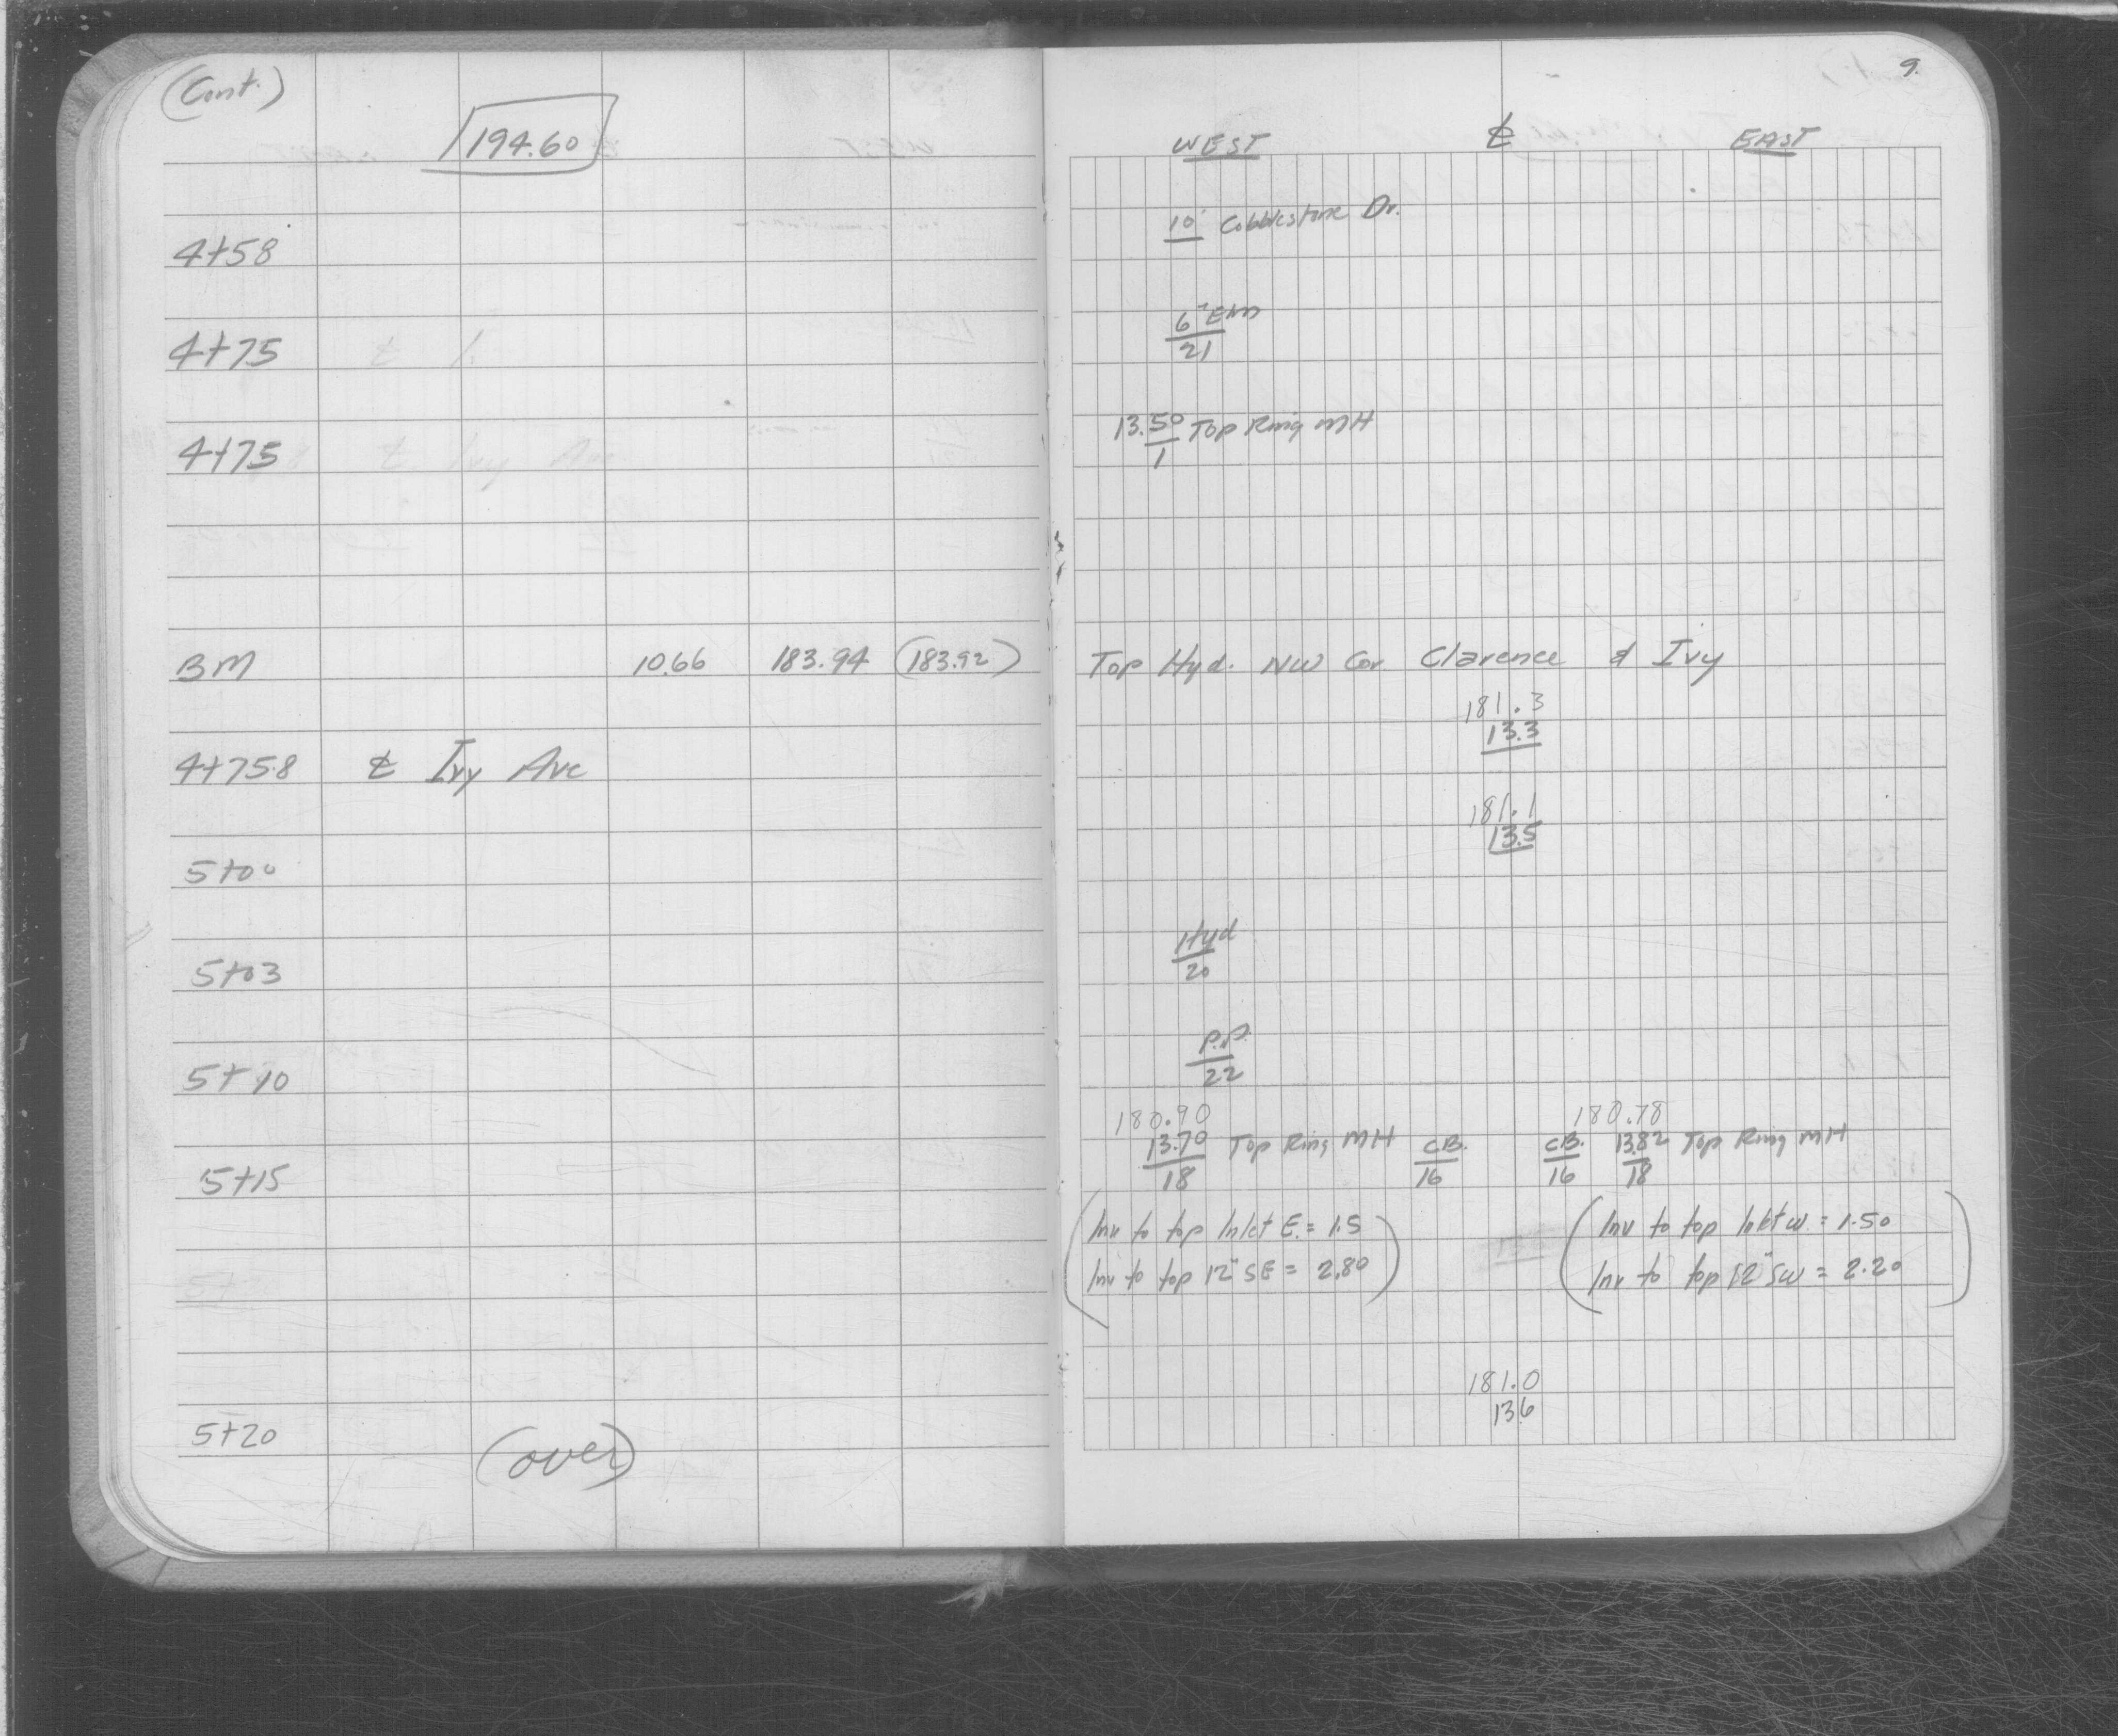 (Cont.)
194.60
9.
WEST ℄ EAST
4+58 10' Cobblestone Dr.
4+75 6" Elm
21
4+75 13.50 Top Ring MH
1
BM 10.66 183.94 (183.92) Top Hyd. NW Cor Clarence & Ivy
181.3
13.3
4+75.8 ℄ Ivy Ave
181.1
13.5
5+00
Hyd
5+03 20
P.P.
5+10 22
180.90 180.78
13.70 Top Ring MH C.B. C.B. 13.82 Top Ring MH
5+15 18 16 16 18
(Inv to top Inlet E. = 1.5 (Inv to top Inlet W. = 1.50
Inv to top 12" SE = 2.80) Inv to top 12" SW = 2.20)
181.0
13.6
5+20
(over)